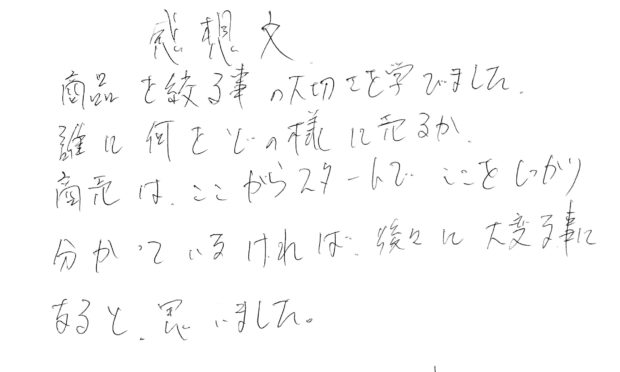 感想文
商品を絞る事の大切さを学びました。
誰に何をどの様に売るか、
商売は、ここからスタートで ここをしっかり
分かっているければ、後々に大変る事に
なると、思いました。